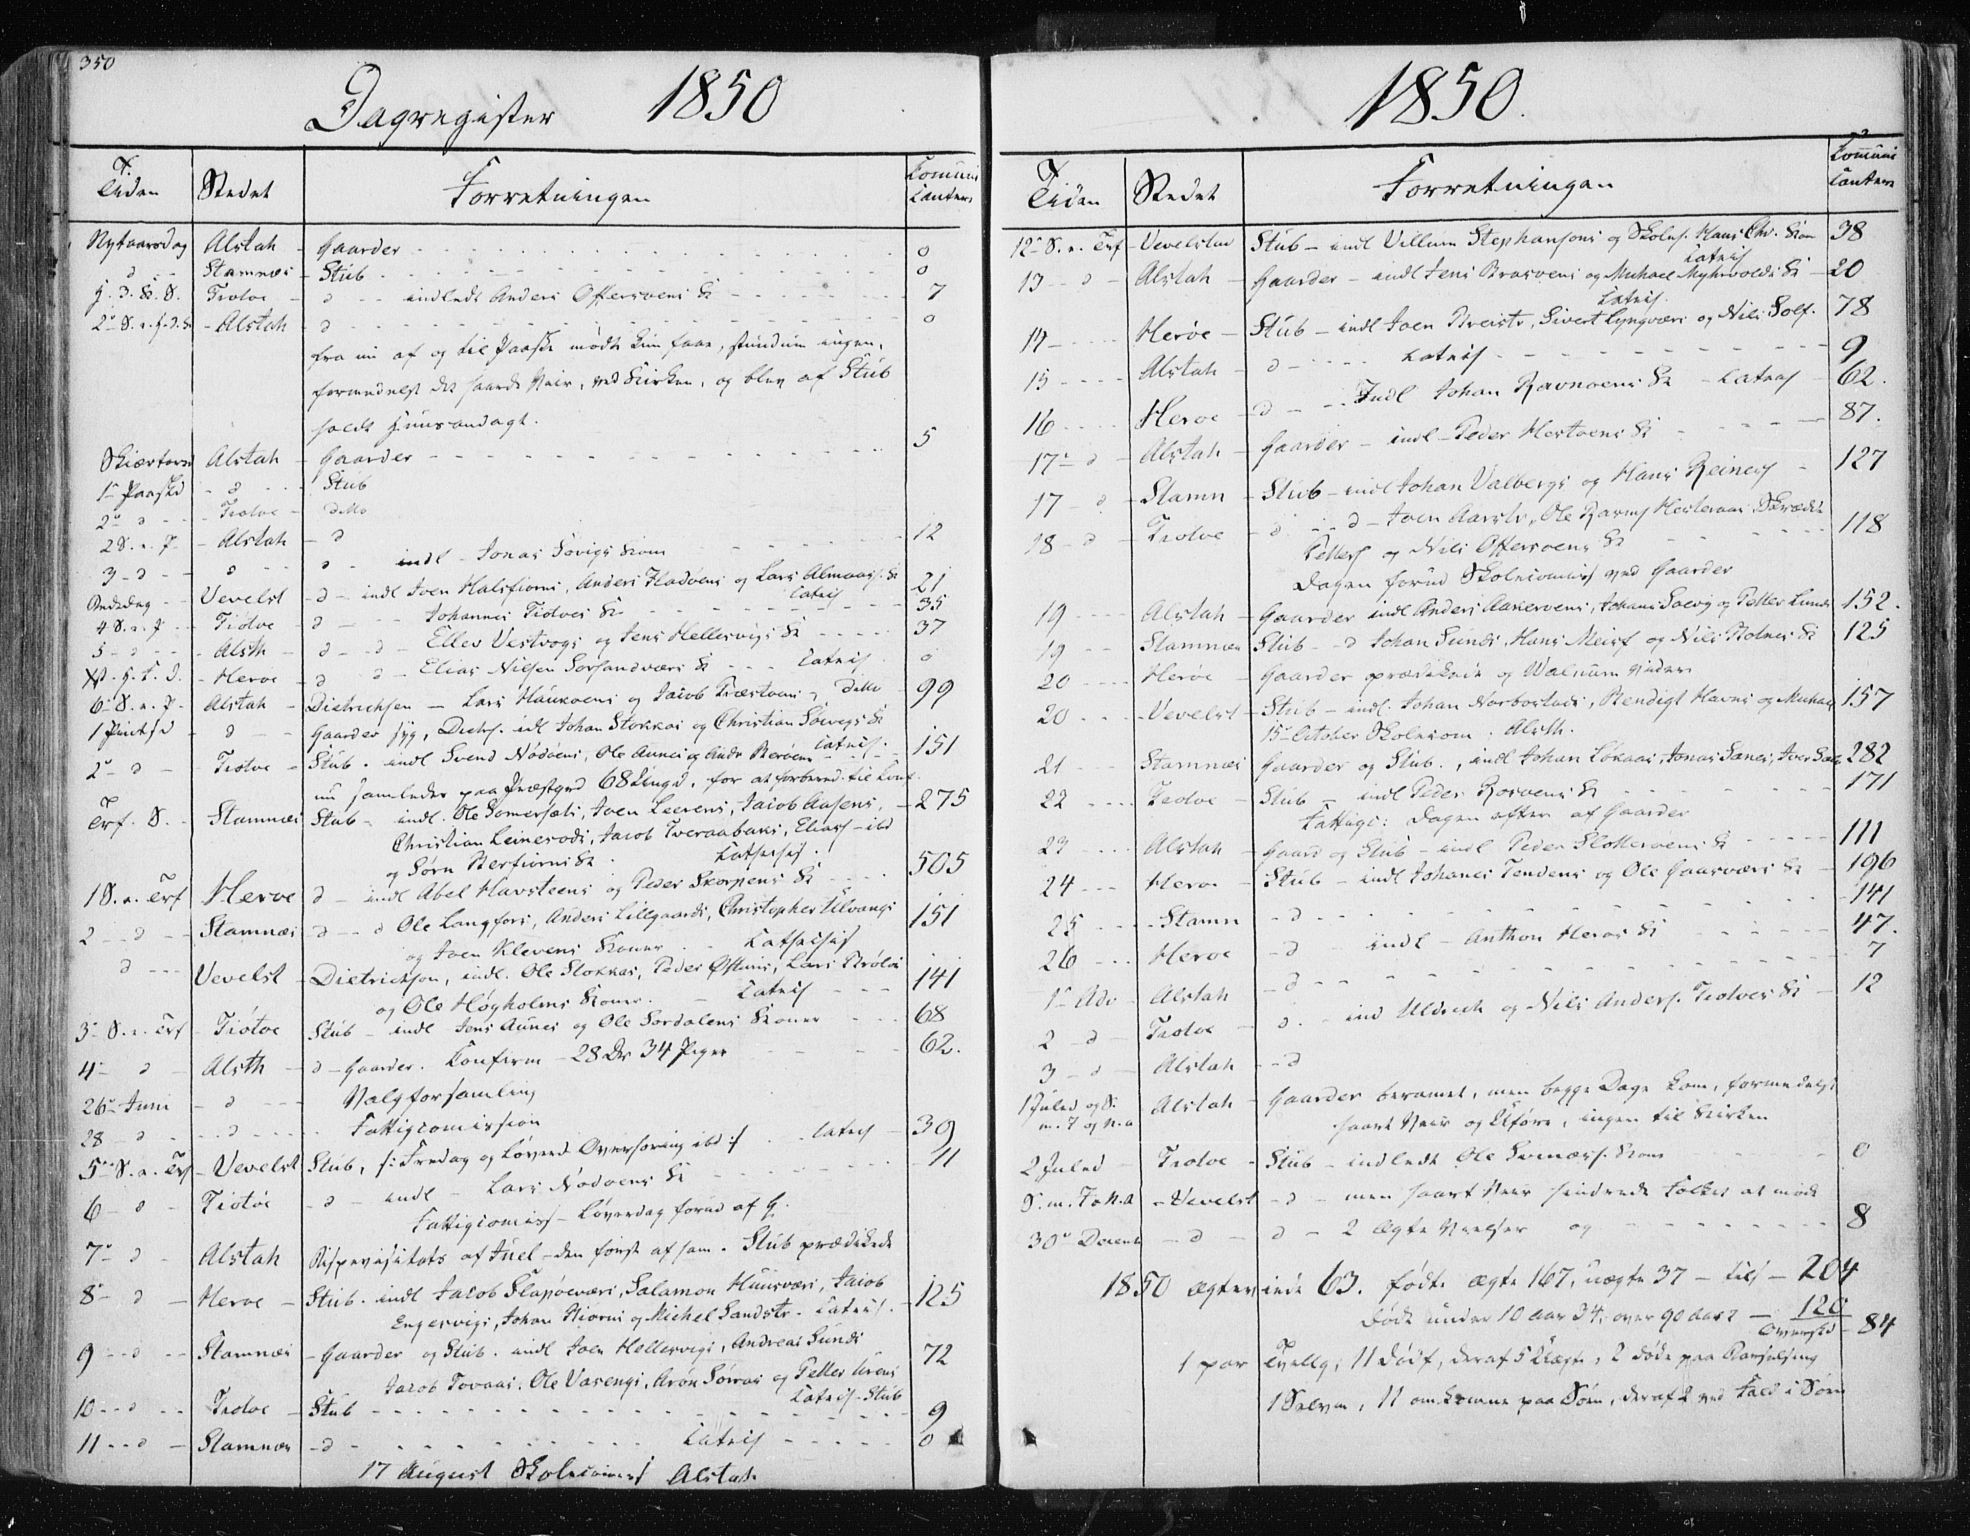 350
Dagregister 1850
Tiden Stedet Forretningen Communicantere
Nytaarsdag Alstah - Gaarder 0
d Stamnæs - Stub 0
H. 3. K. S. Tiotøe - d - indledt Anders Offersøens K 7
2 S. e. H. 3. K. - Alstah - d 0
fra nu af og til Paaske mødte kun faae, stundum ingen,
formedelst det haarde Veir, ved Kirken, og blev af Stub
holdt Huusandagt.
Skiærtorsd Alstah - Gaarder 5
1 Paaskd - d - Stub
2 d - Tiotøe - ditto
2 S. e. P. - Alstah - d 12
3 - d - d - d - indl - Jonas Søvigs Kone
Bededag - Vevelst - d - indl Joen Halsfiorns, Anders Fladøens og Lars Almaas K 21
4 S. e. P - Tiotøe - d - Johannes Tiotøes K Catecis 35
5 - d - Alsth - d - d - Ellev Vestvogs og Jens Hellesvigs K 37
Herøe - d d - Elias Nilsen Sørsandværs K Catecis 0
6 S. e. P. Alstah - Dietrichsen - Lars Haukøens og Jacob Træstøens ditto 99
1 Pintsd d - Gaarder syg, Dietr. indl Johan Stokkas og Christian Søvigs K
2 - d - Tiotøe - Stub. indl Svend Nødøens, Ole Aunes og Andr Berøens Catecis 151
nu samledes paa Præstgrd 68 Ungd. for at forbered. til Conf.
Trf. S. - Stamnæs Stub - indl. Ole Somersæts, Joen Leerens, Jacob Aasens, 275
Christian Leinesodes, Jacob Tveraabaks, Elias - ibd
og Sørn Nerfiorns K Catechis.
1 S. e. Trf Herøe d - indl Abel Havsteens og Peder Skorpens K 505
2 - d - Stamnæs - d - d Ole Langfors, Anders Lillgaards, Christopher Ulvangs 151
og Joen Klevens Koner Catechis
d - Vevelst - Dietrichson, indl. Ole Stokkas, Peder Øftuns, Lars Brøløs 141
og Ole Høyholms Koner. - Catecis
3 S. e. Trf - Tiotøe Stub - indl Jens Aunes og Ole Sørdalens Koner 68
4 d - Alsth - d - Gaarder. Confirm - 28 Dr 34 Piger 62.
26 Juni - d - Valgforsamling
28 - d - d - Fattigcomission
5 S. e. Trf - Vevelst Stub, f: Fredag og Løverd Overhøring ibd :/ Catecis 39
6 - d - Tiotøe - d - indl - Lars Nødøens K 11
Fattigcomiss - Løverdag forud af G.
7 - d - Alstah Bispevisitats af Juel - den første af ham. Stub prædikede
8 - d - Herøe - Stub. indl Jacob Slapøeværs, Salamon Huusværs, Jacob 125
Engesvigs, Johan Biørns og Michel Sandstr. Catecis.
9 - d - Stamnæs - Gaarder og Stub. indl Joen Hellesvigs, Andreas Sunds 72
Jacob Tovaas, Ole Vasengs, Arøn Sørras og Petter Urens
10 - d - Tiotøe - Stub Catecis - Stub 9
11 - d - Stamnæs - d - Catecis 0
17 August Skolecomiss Alstah.
1850.
Tiden Stedet Forretningen Communicantere
12 S. e. Trf - Vevelstad Stub - indl Villum Stephansons og Skoleh. Hans Chr. Kone 38
13 - d - Alstah - Gaarder - indl Jens Brasøens og Michael Myhrvolds K Catecis 20
14 - Herøe - Stub - indl Joen Breistr, Sivert Lyngværs og Nils Solf. Catecis. 78
15 - Alstah - d - Catecis 9
16 - Herøe - d - Indl Johan Ravnøens K - Catecis 62.
17 - d - Alstah - Gaarder - indl - Peder Hestøens K 87.
17 - d - Stamn - Stub - indl Johan Valbergs og Hans Reines 127
18 - d - Tiotøe - d - d - Joen Aarstr, Ole Ravns Hesteraas Skrædd 118
Petters og Nils Offersøens K
Dagen forud Skolecomiss ved Gaarder
19 - Alstah - Gaarder indl Anders Aakerøens, Johans Søevg og Petter Lunds 152.
19 - Stamnæs Stub - d Johan Sunds, Hans Meisf og Nils Botnes K 125
20 - Herøe - Gaarder prædikede og Walnum Vider
20 - Vevelst - Stub - indl. Johan Norbostads, Bendigt Havns og Michael 157
15 October Skolecom: Alsth.
21 - Stamnæs Gaarder og Stub., indl Johan Løkaas, Jonas Sanes, Iver 282
22 - Tiotøe - Stub - indl Peder Rosøens K 171
Fattigc: Dagen efter af Gaarder
23 - Alstah - Gaard og Stub - indl Peder Slotterøens K 111
24 - Herøe - Stub - indl Johanes Tendens og Ole Gaasværs K - 196
25 - Stamn - d - 141
26 - Herøe - d indl - Anthon Herøes K 47.
1 Adv - Alstah - d - 7
2 - d - Tiotøe - d. - ind Uldrick og Nils Anders. Tiotøes K 12
3 - d - Alstah - d
1 Juled og S. Alstah - Gaarder berammet, men begge Dage kom, formedelst
m. J og N.a haart Veir og Uføre, ingen til Kirken
2 Juled - Tiotøe - Stub - indledt Ole Svenærs. Kone 0
S. m. J & N.a - Vevelst - d - men haart Veir hindrede Folket at møde
30 Decemb - d - d - 2 Ægte Vielser og 8
1850 Ægteviede 63. fødte ægte 167, uægte 37 - tils - 204
døde under 10 aar 34, over 90 aar 2 - 120
Overskd - 84
1 par Tvillg, 11 dødf, deraf 5 Uægte, 2 døde paa Barselseng
1 Selvm, 11 omkomne paa Søen, deraf 2 ved Fald i Søen